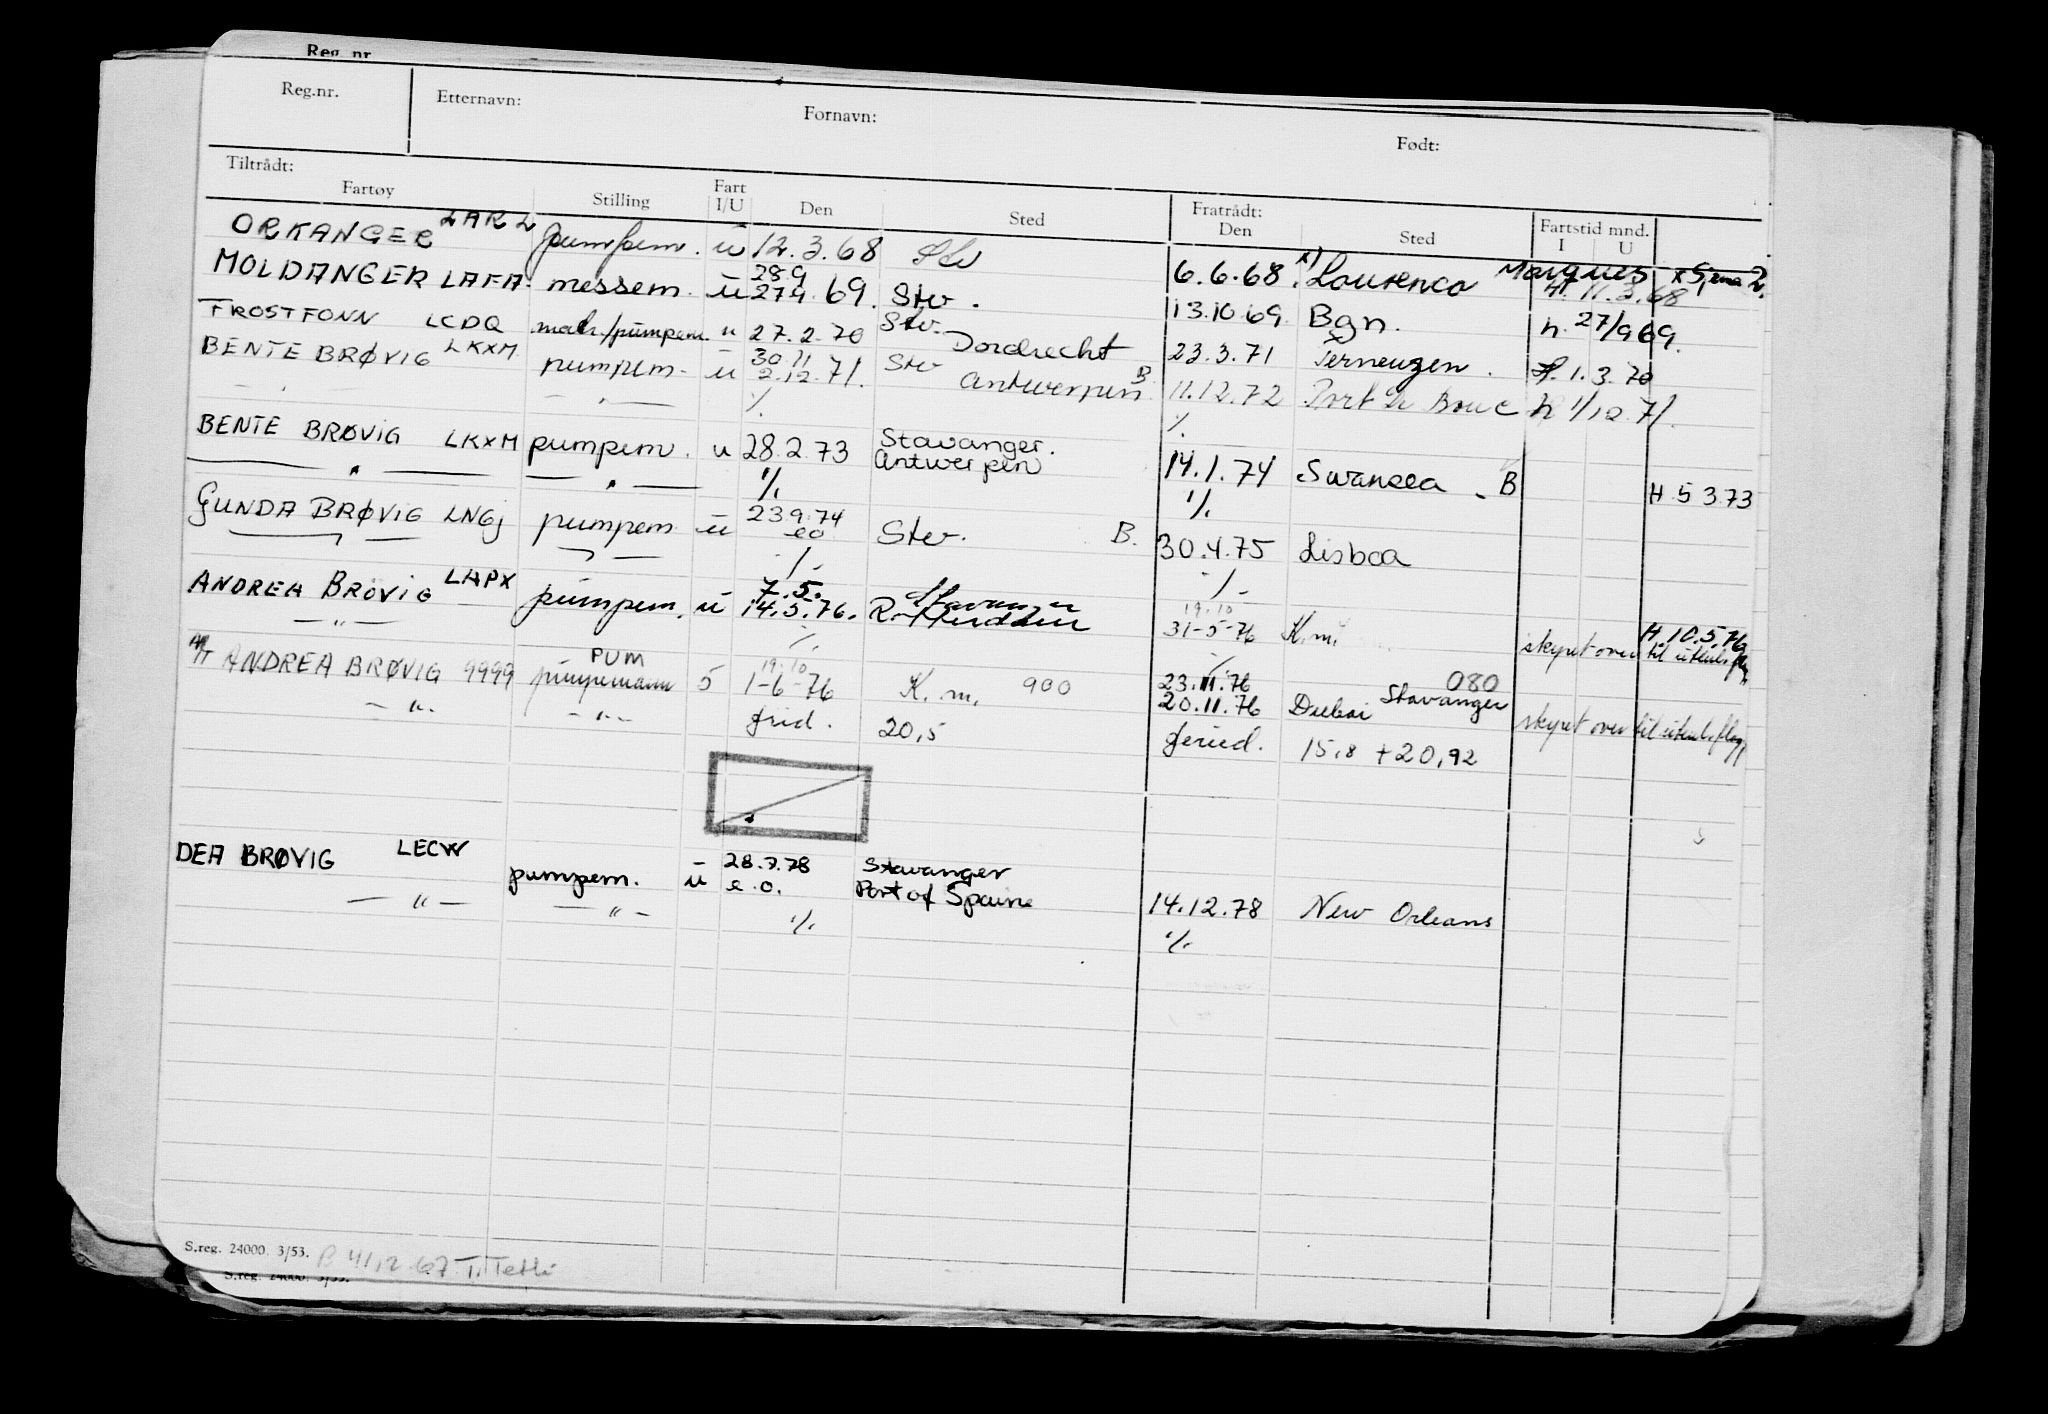 Reg. nr.
Reg.nr. Etternavn: Fornavn: Født:
Tiltrådt: Fratrådt:
Fartøy Stilling Fart I/U Den Sted Den Sted Fartstid mnd. I U
ORKANGER LARL pumpem. u 12.3.68 Stv 6.6.68 x) Lourenco Marques x 5, 2.
H. 11.3.68
MOLDANGER LAFA messem. u 28 9 27 9. 69. Stv. 13.10.69. Bgn. h. 27/9 69.
FROSTFONN LCDQ matr./pumpem. u 27.2.70 Stv. Dordrecht 23.3.71 Terneuzen. H. 1.3.70
BENTE BRØVIG LKXM pumpem. u 30 11 2.12.71. Stv Antwerpen B. 11.12.72 Port de Bouc h 1/12.71.
— " — — " — ·/. ·/.
BENTE BRØVIG LKXM pumpem. u 28.2.73 Stavanger. Antwerpen 14.1.74 Swansea - B H 5 3.73
— " — — " — ·/. ·/.
GUNDA BRØVIG LNGJ pumpem u 23.9.74 eo Stv. B. 30.4.75 Lisboa
— " — — " — ·/. ·/.
ANDREA BRØVIG LAPX pumpem. u 7.5. 14.5.76. Stavanger Rotterdam 19.10 31-5-76 K.m. skyret over til utenl. flagg H. 10.5.76
— " — ·/. ·/.
M/T ANDREA BRØVIG 9999 PUM pumpemann 5 19.10 1-6-76 K.m. 900 23.11.76 20.11.76 Dubai Stavanger 080 skyret over til utenl. flagg
— " — — " — 20,5 15,8 + 20,92
DEA BRØVIG LECW pumpem. u 28.7.78 e.o. Stavanger Port of Spaine 14.12.78 New Orleans
— " — — " — ·/. ·/.
S.reg. 24000. 3/53.
S.reg. 24000. 3/53.